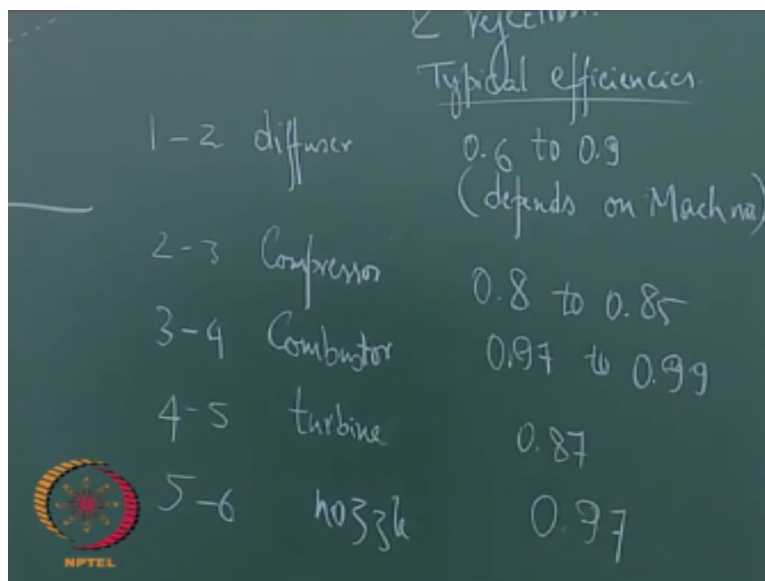 & rejection.
Typical efficiencies.
1-2 diffuser 0.6 to 0.9
(depends on Mach no)
2-3 Compressor 0.8 to 0.85
3-4 Combustor 0.97 to 0.99
4-5 turbine 0.87
5-6 nozzle 0.97
NPTEL